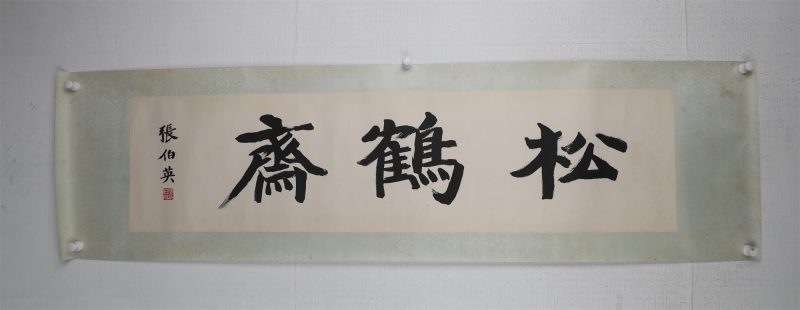 松鶴齋
張伯英